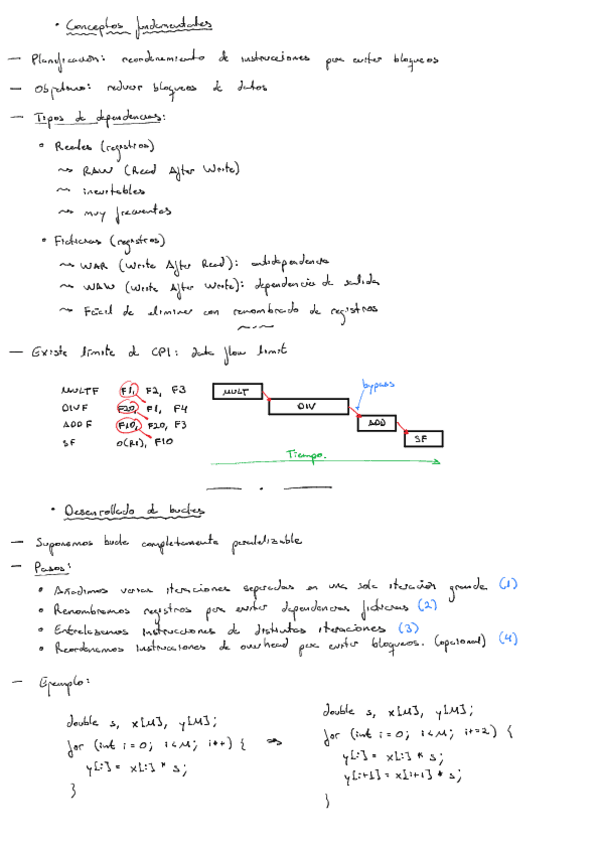 • Conceptos fundamentales
— Planificación: reordenamiento de instrucciones para evitar bloqueos
— Objetivo: reducir bloqueos de datos
— Tipos de dependencias:
• Reales (registros)
~> RAW (Read After Write)
~ inevitables
~> muy frecuentes
• Ficticias (registros)
~> WAR (Write After Read): antidependencia
~> WAW (Write After Write): dependencias de salida
~ Fácil de eliminar con renombrado de registros
— Existe límite de CPI: data flow limit
MULTF F1, F2, F3
DIVF F20, F1, F4
ADDF F10, F20, F3
SF 0(R1), F10
MULT
DIV
bypass
ADD
SF
Tiempo.
• Desenrollado de bucles
— Suponemos bucle completamente paralelizable
— Pasos:
• Añadimos varias iteraciones separadas en una sola iteración grande (1)
• Renombramos registros para evitar dependencias ficticias (2)
• Entrelazamos instrucciones de distintas iteraciones (3)
• Reordenamos instrucciones de overhead para evitar bloqueos. (opcional) (4)
— Ejemplo:
double s, x[M], y[M];
for (int i=0; i<M; i++) {
y[i] = x[i] * s;
}
=>
double s, x[M], y[M];
for (int i=0; i<M; i+=2) {
y[i] = x[i] * s;
y[i+1] = x[i+1] * s;
}